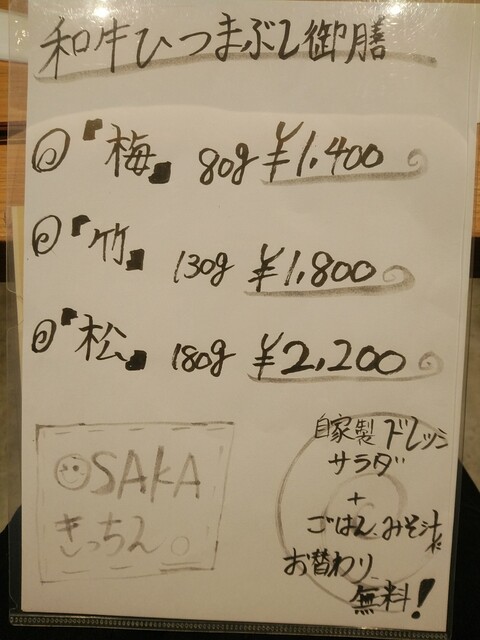 和牛ひつまぶし御膳
◎『梅』 80g ¥1,400
◎『竹』 130g ¥1,800
◎『松』 180g ¥2,200
OSAKA
きっちん。
自家製ドレッシ
サラダ
+
ごはん、みそ汁
お替わり
無料!